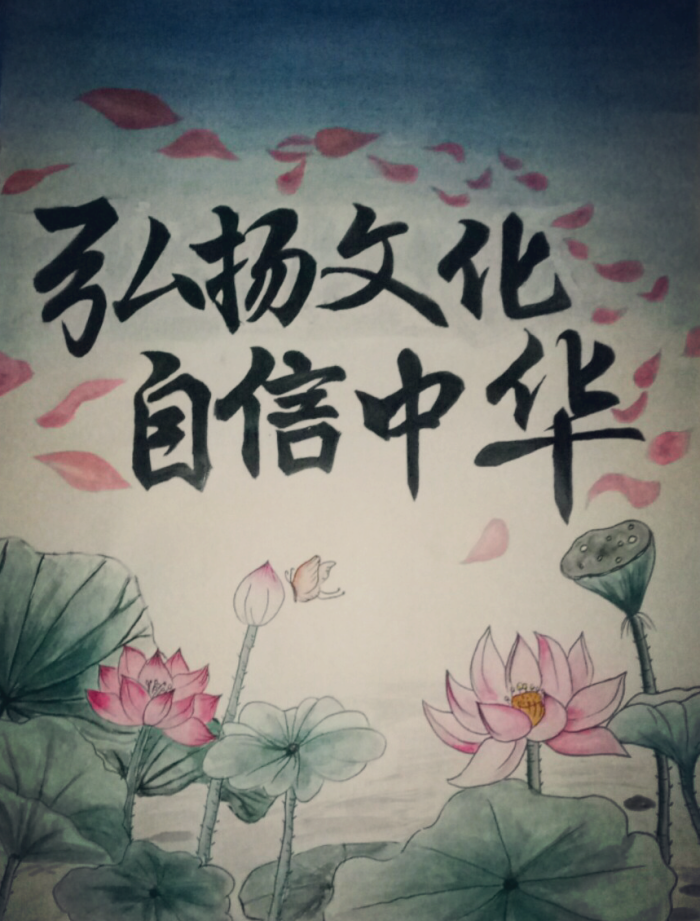 弘扬文化
自信中华